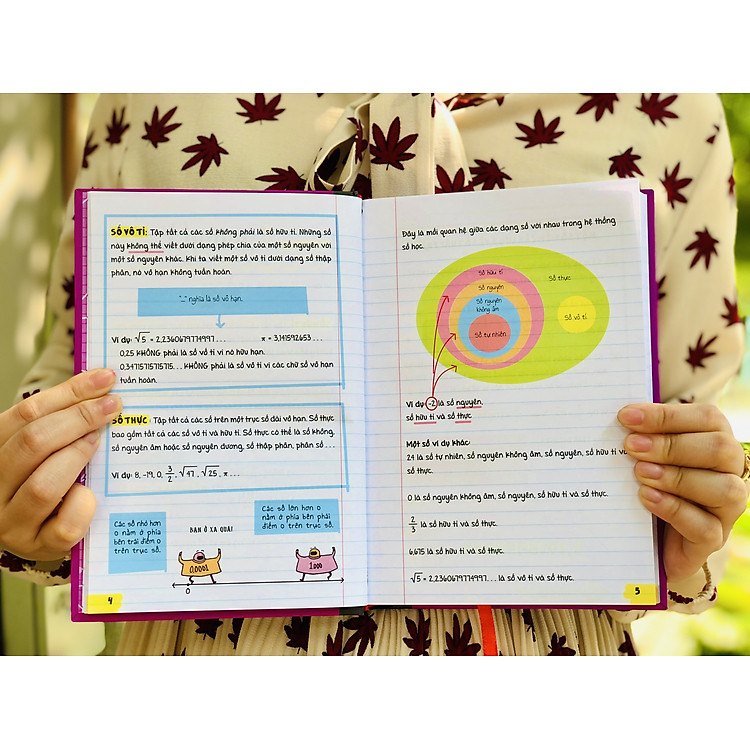 SỐ VÔ TỈ: Tập tất cả các số không phải là số hữu tỉ. Những số
này không thể viết dưới dạng phép chia của một số nguyên với
một số nguyên khác. Khi ta viết một số vô tỉ dưới dạng số thập
phân, nó vô hạn không tuần hoàn.
"..." nghĩa là số vô hạn.
Ví dụ: √5 = 2,2360679774997... π = 3,141592653...
0,25 KHÔNG phải là số vô tỉ vì nó hữu hạn.
0,34715715715715... KHÔNG phải là số vô tỉ vì các chữ số vô hạn
tuần hoàn.
SỐ THỰC: Tập tất cả các số trên một trục số dài vô hạn. Số thực
bao gồm tất cả các số vô tỉ và hữu tỉ. Số thực có thể là số không,
số nguyên âm hoặc số nguyên dương, số thập phân, phân số...
Ví dụ: 8, -19, 0, 3/2, √47, √25, π...
Các số nhỏ hơn
0 nằm ở phía
bên trái điểm 0
trên trục số.
BẠN Ở XA QUÁ!
Các số lớn hơn 0
nằm ở phía bên phải
điểm 0 trên trục số.
0,0001
1.000
0
4
Đây là mối quan hệ giữa các dạng số với nhau trong hệ thống
số học.
Số hữu tỉ
Số thực
Số nguyên
Số nguyên
không âm
Số vô tỉ
Số tự nhiên
Ví dụ: -2 là số nguyên,
số hữu tỉ và số thực
Một số ví dụ khác:
24 là số tự nhiên, số nguyên không âm, số nguyên, số hữu tỉ và
số thực.
0 là số nguyên không âm, số nguyên, số hữu tỉ và số thực.
2/3 là số hữu tỉ và số thực.
6,675 là số hữu tỉ và số thực.
√5 = 2,2360679774997... là số vô tỉ và số thực.
5